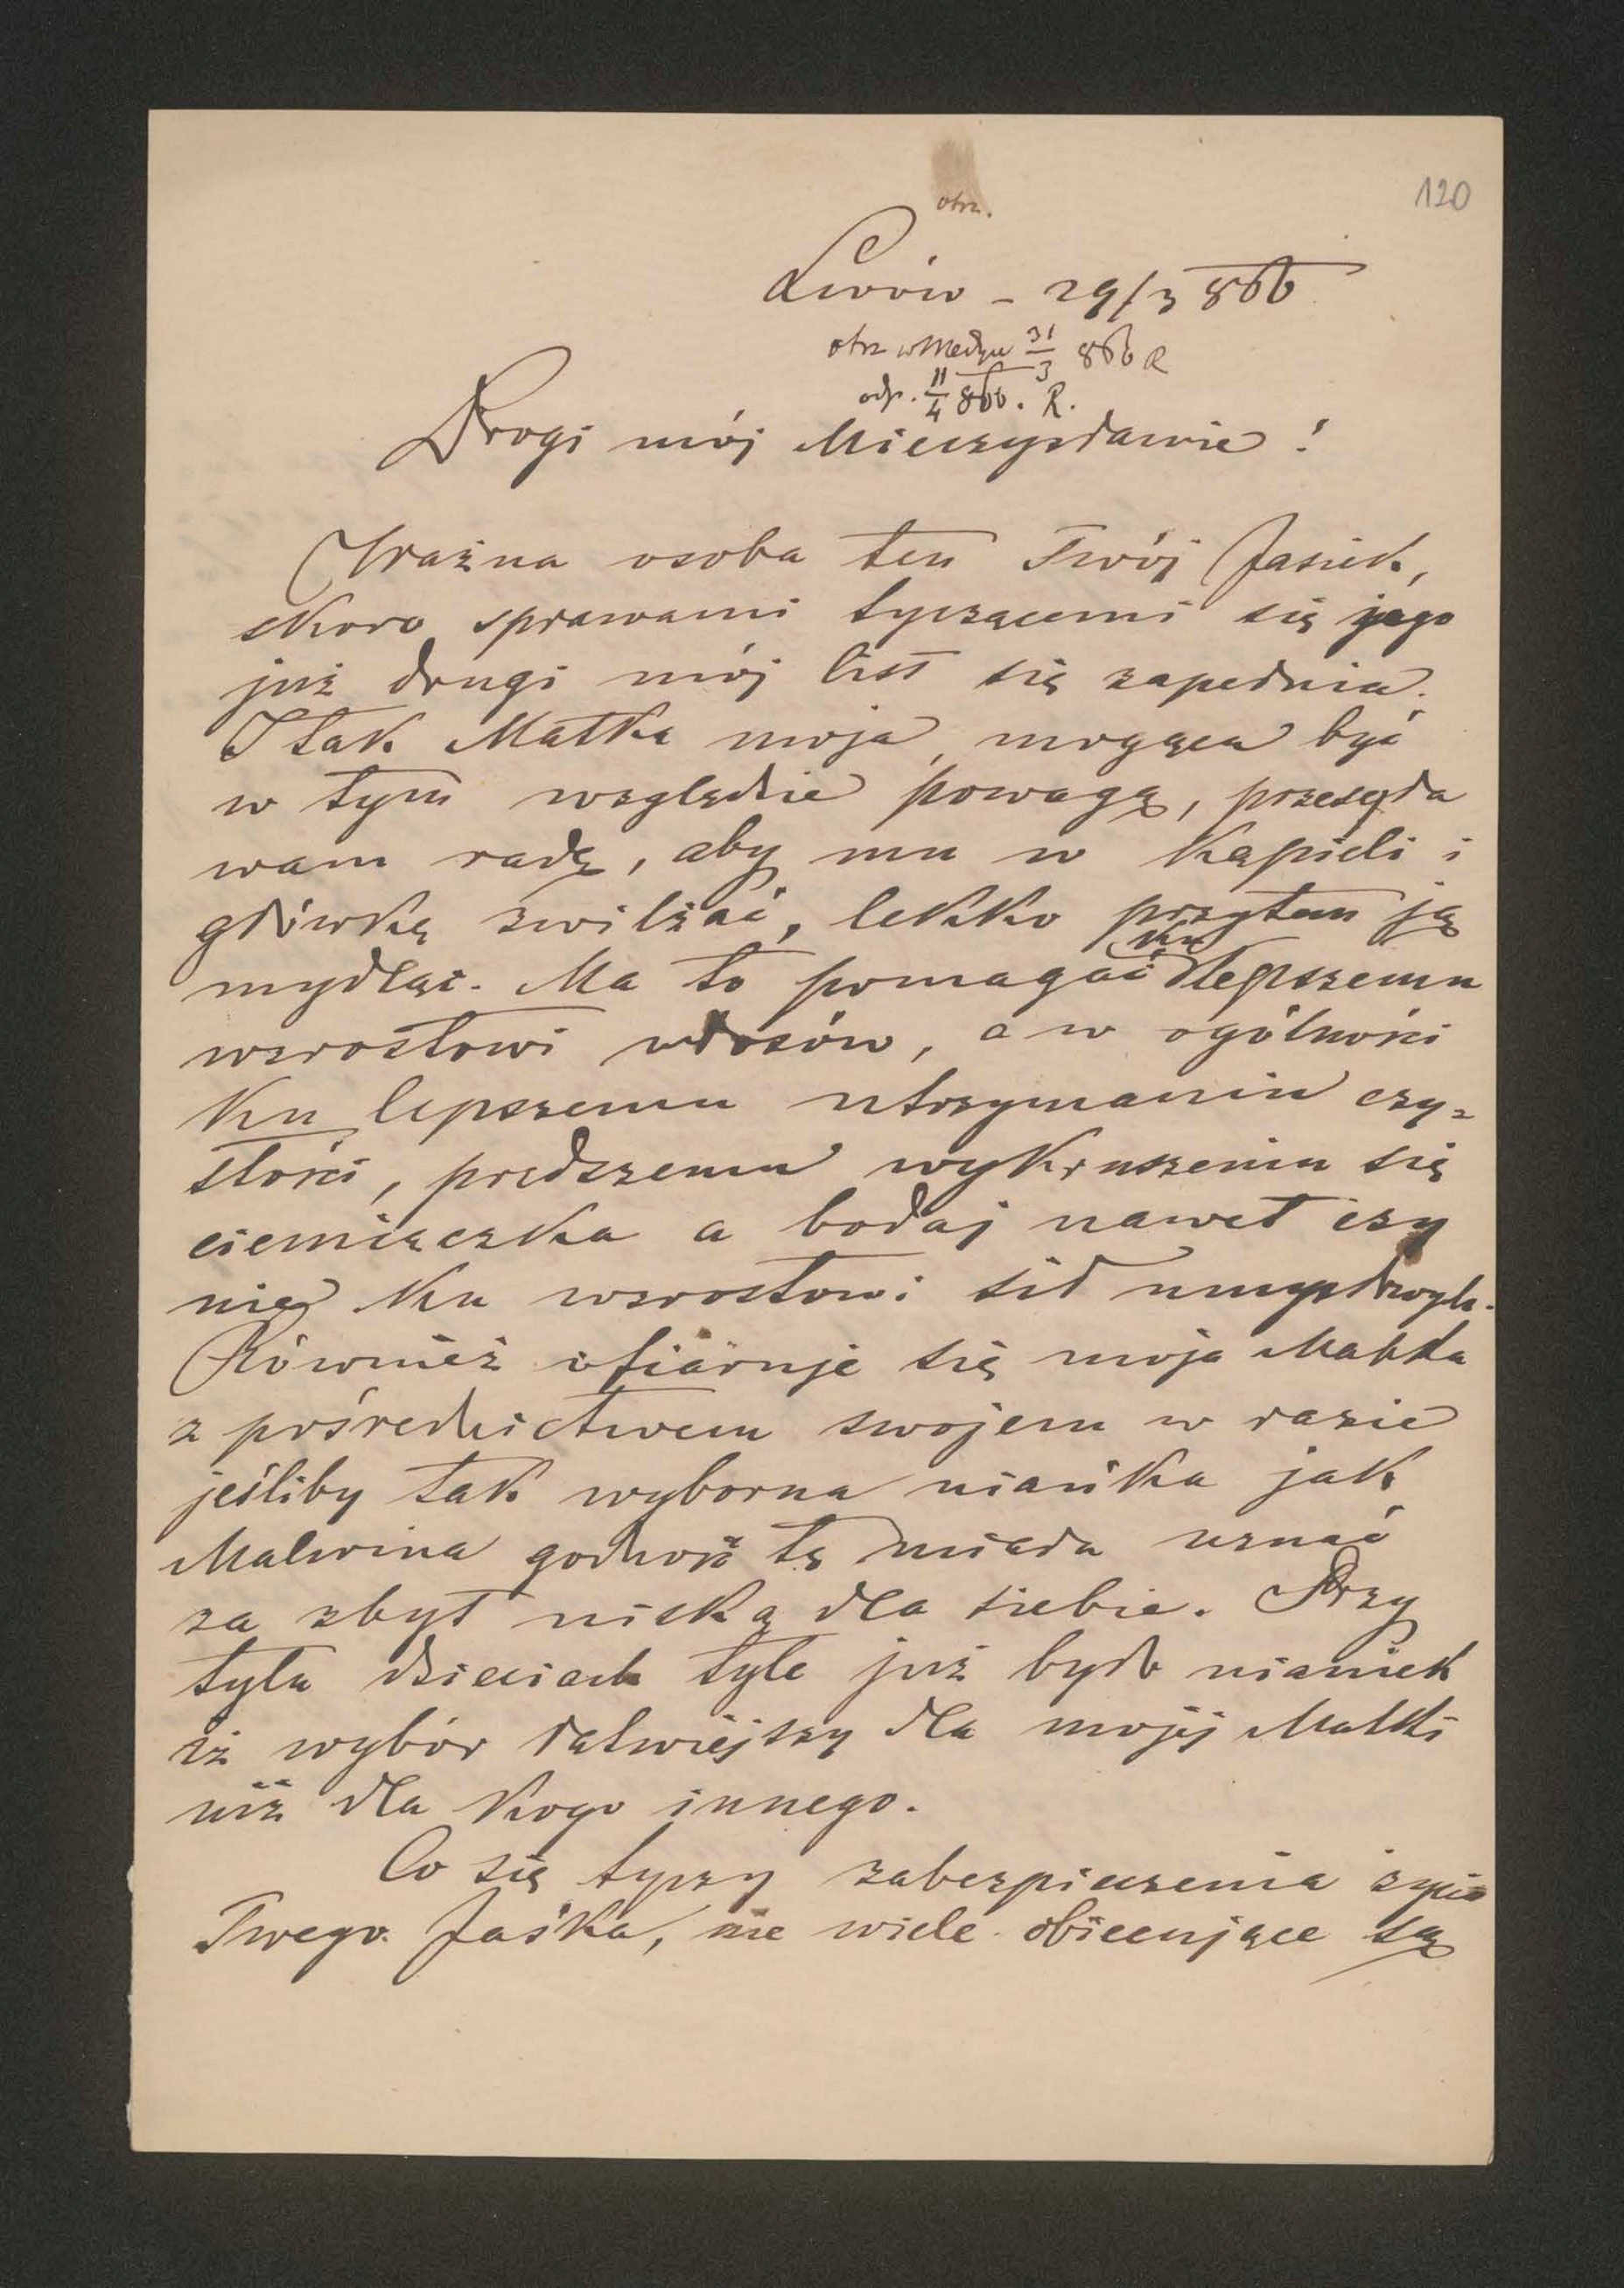 120
otrz.
Lwów – 29/3 866
otrz w Medyce 31/3 866 R
odp. 11/4 866. R.
Drogi mój Mieczysławie!
Ważna osoba ten Twój Jasiek,
skoro sprawami tyczącemi się jego
już drugi mój list się zapełnia.
I tak Matka moja, mogąca być
w tym względzie powagą, przesyła
wam radę, aby mu w kąpieli i
główkę zwilżać, lekko przytem ją
mydląc. Ma to pomagać ku lepszemu
wzrostowi włosów, a w ogólności
ku lepszemu utrzymaniu czy=
stości, prędszemu wykruszeniu się
ciemiączka a bodaj nawet czy
nie ku wzrostowi sił umysłowych.
Również ofiaruje się moja Matka
z pośrednictwem swojem w razie
jeśliby tak wyborna niańka jak
Malwina godność tę miała uznać
za zbyt niską dla siebie. Przy
tylu dzieciach tyle już było nianiek
iż wybór łatwiejszy dla mojéj Matki
niż dla kogo innego.
Co się tyczy zabezpieczenia życia
Twego Jaśka, nie wiele obiecujące są